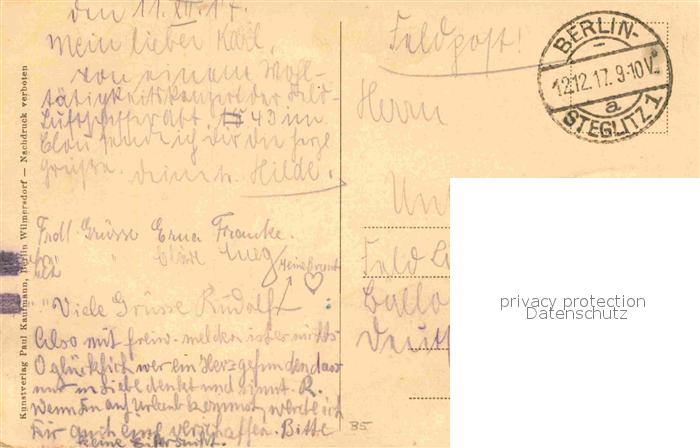 den 11.XII.17.
Mein lieber Karl,
von einem Wohl-
tätigkeitskonzert der Feld-
Luftschifferabt. 43 im
send ich dir die herzl
Grüsse. deine Hilde.
Frdl Grüsse Erna Francke.
" "
meine Braut
"Viele Grüsse Rudolf
Also mit freiw. melden ist er nichts
O glücklich wer ein Herz gefunden das
nur in Liebe denkt und sinnt. R.
Wenn Du auf Urlaub kommst, werde ich
Dir auch eins verschaffen. Bitte
keine Eifersucht.
Kunstverlag Paul Kaufmann, Berlin Wilmersdorf — Nachdruck verboten
Feldpost!
BERLIN-
12.12.17. 9-10V.
a
STEGLITZ 1
Herrn
Un
Feld L
Ballo
Deut
privacy protection
Datenschutz
B5